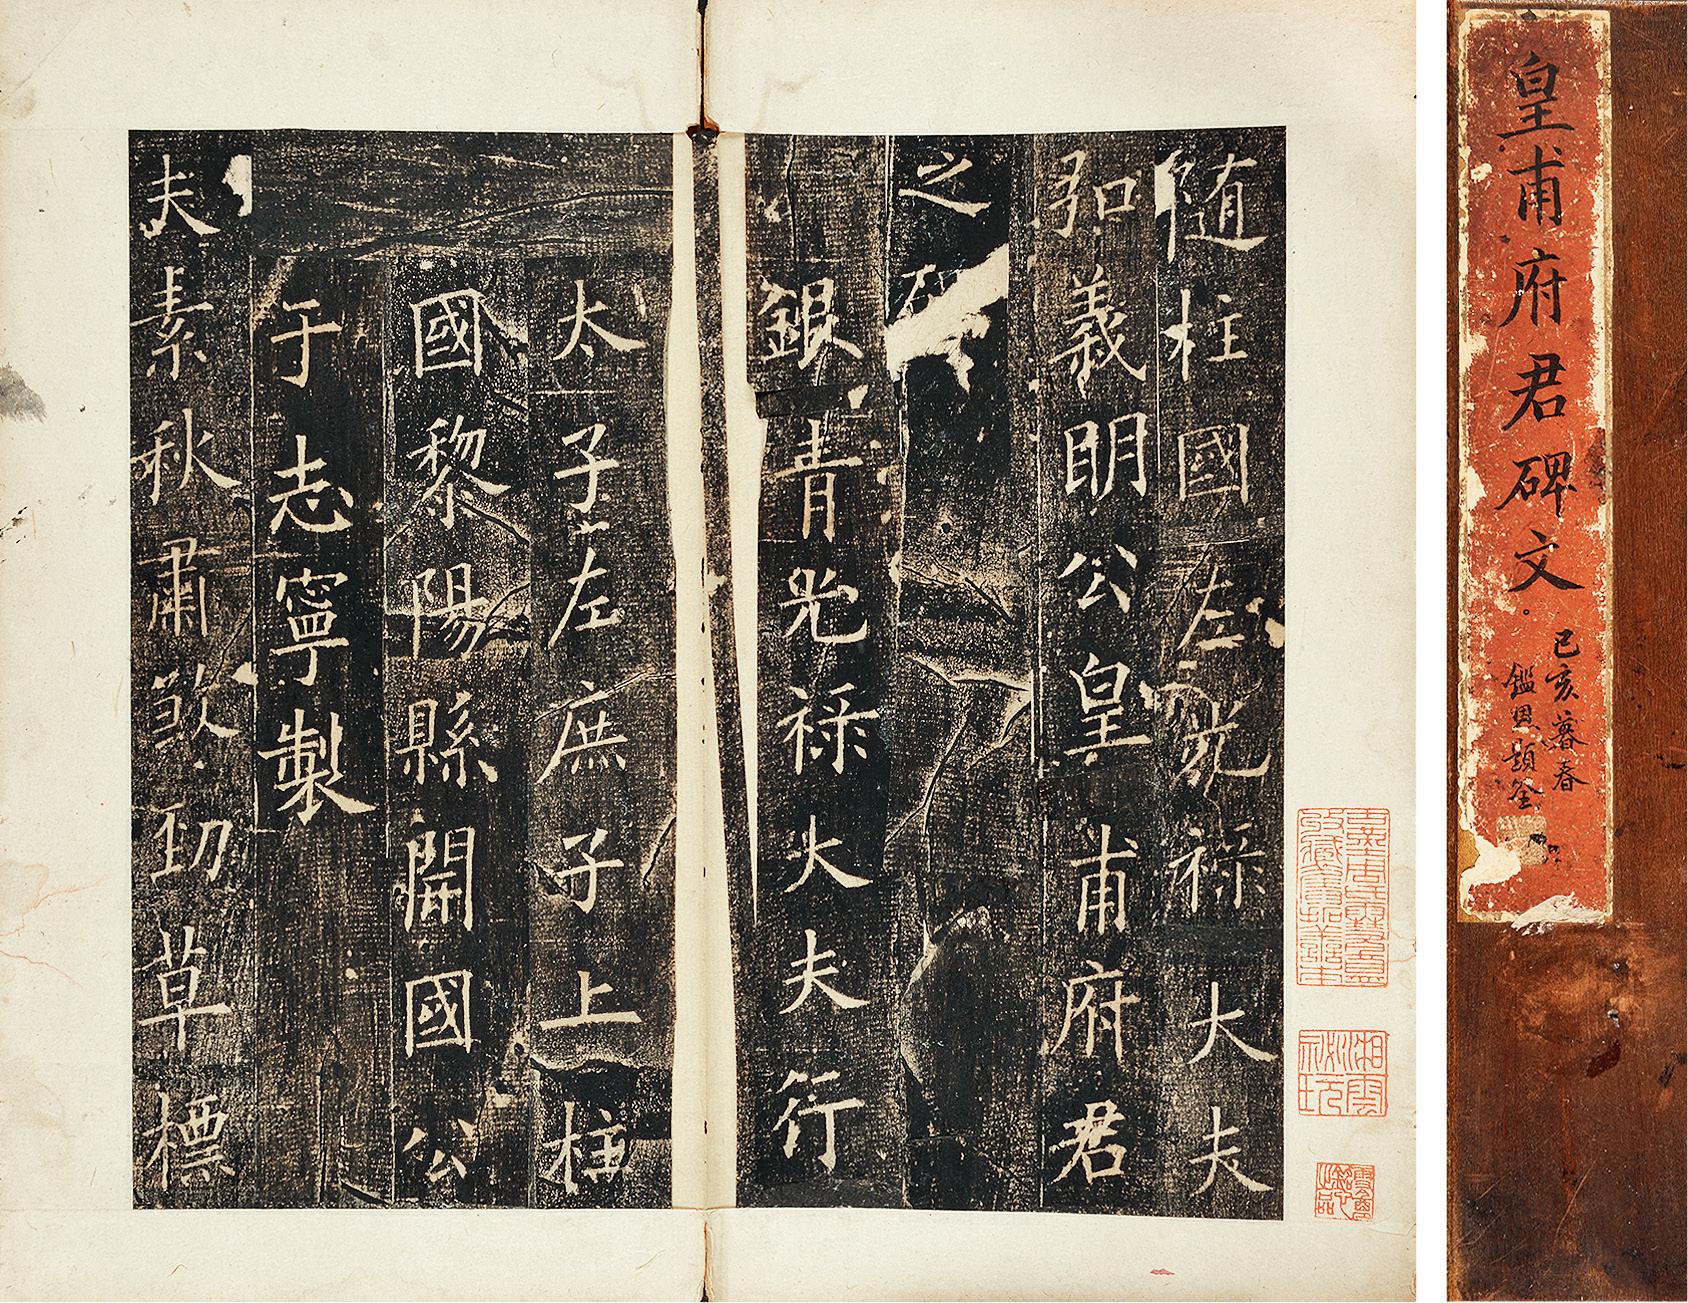 随柱國左光禄大夫
弘義明公皇甫府君
之碑
銀青光禄大夫行
太子左庶子上柱
國黎陽縣開國公
于志寧製
夫素秋肅煞勁草標
皇甫府君碑文
己亥暮春
題签